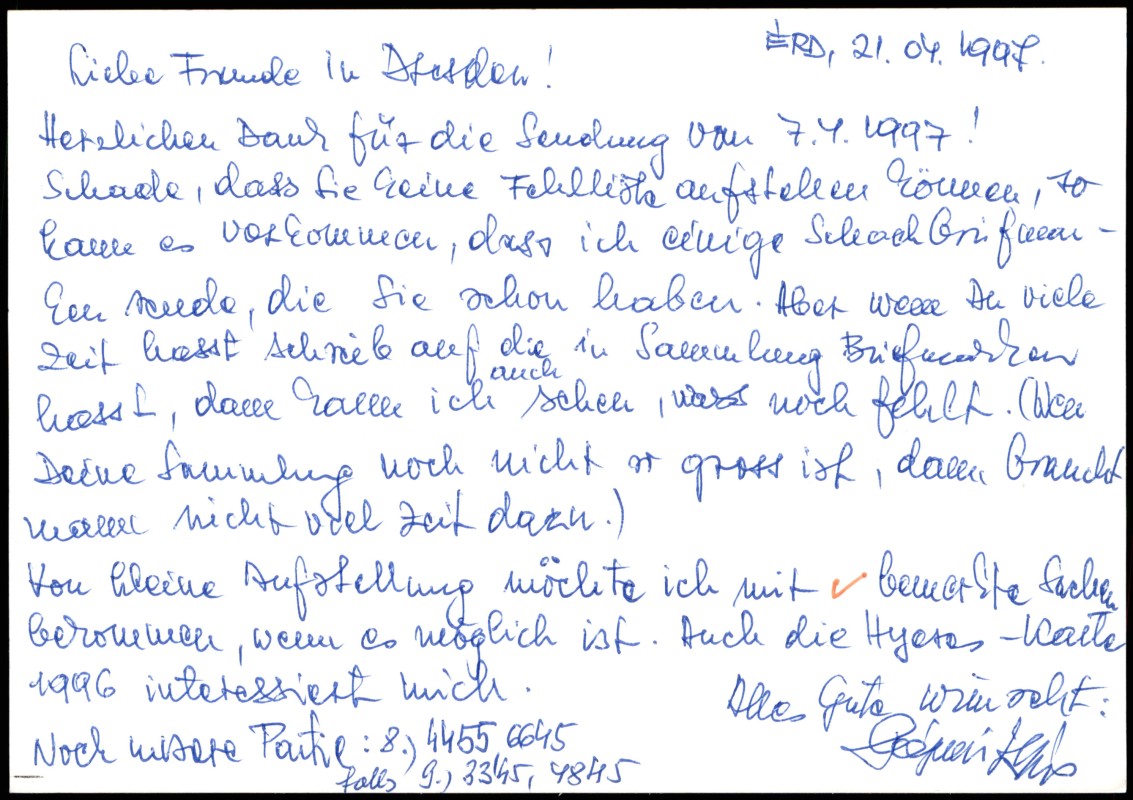 ÉRD, 21. 04. 1997.
Liebe Freunde in Dresden!
Herzlichen Dank für die Sendung von 7.4.1997!
Schade, dass Sie keine Fehlliste aufstellen können, so
kann es vorkommen, dass ich einige Schach Briefmar-
ken sende, die Sie schon haben. Aber wenn Du viele
Zeit hasst schreib auf die in Sammlung Briefmarken
auch
hasst, dann kann ich sehen, was noch fehlt. (Wen
Deine Sammlung noch nicht so gross ist, dann braucht
mann nicht viel Zeit dazu.)
Von kleine Aufstellung möchte ich mit ✓ bemerkte Sachen
bekommen, wenn es möglich ist. Auch die Hyeres-Karte
1996 interessiert mich.
Alles Gute wünscht:
Noch unsere Partie: 8.) 4455 6645
falls 9.) 3345, 4845